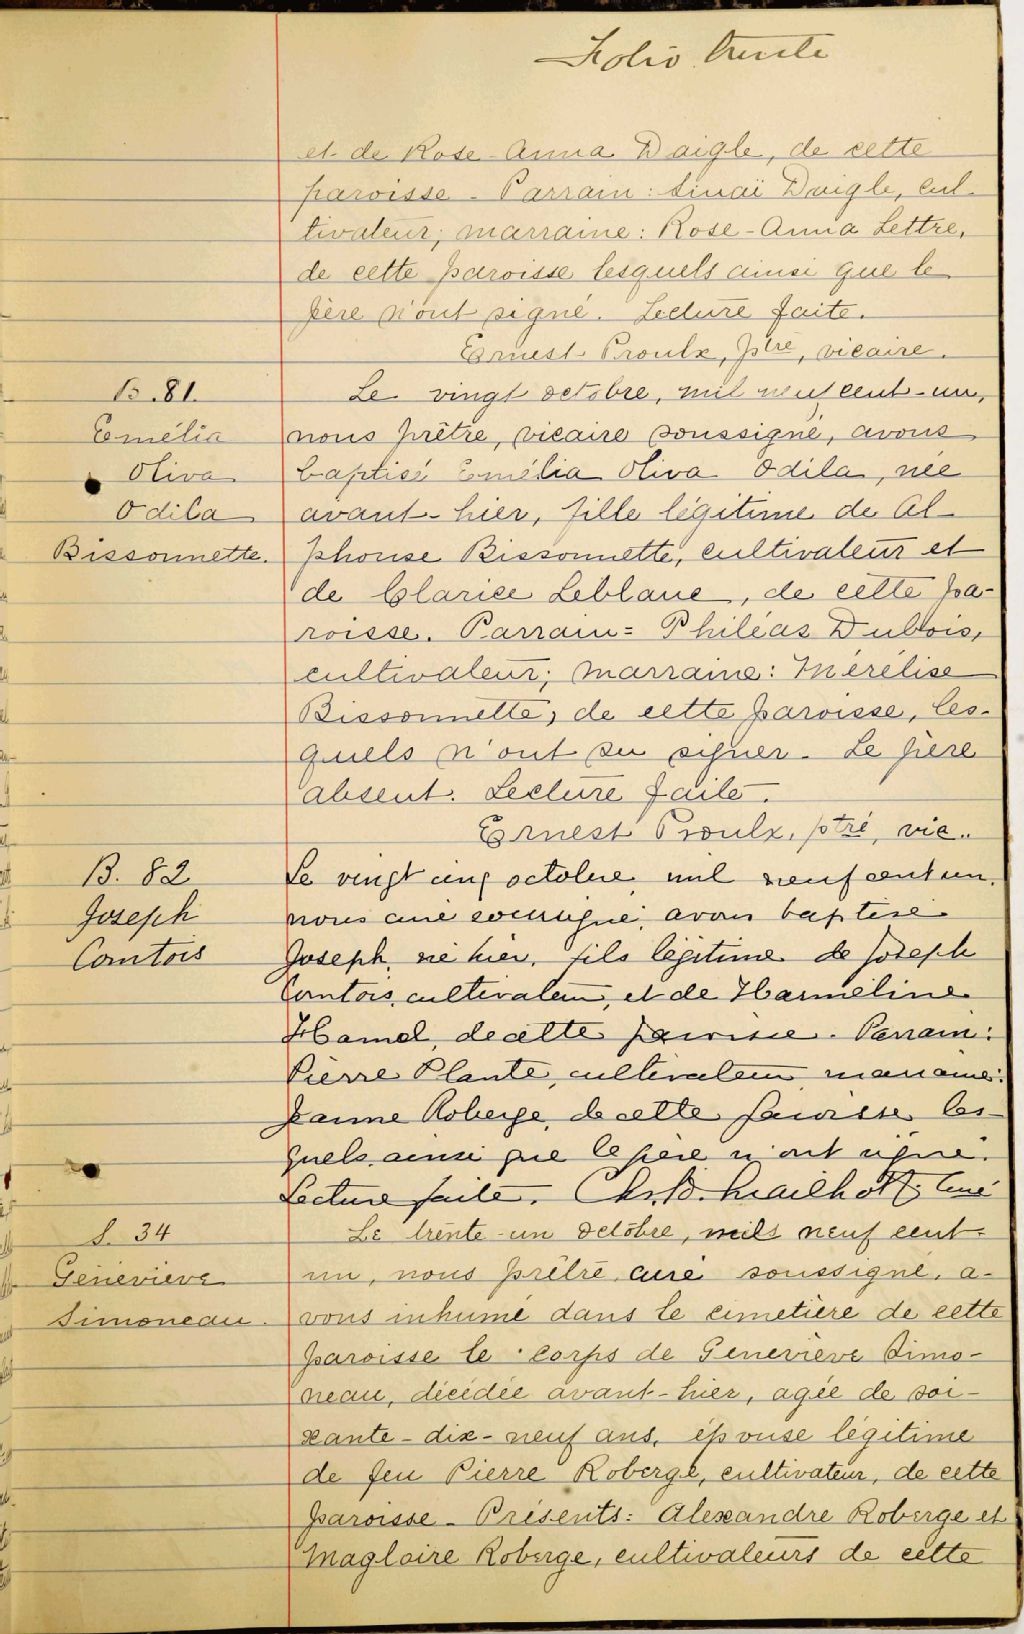 Folio trente
et de Rose-Anna Daigle, de cette
paroisse - Parrain: Sinaï Daigle, cul-
tivateur; marraine: Rose-Anna Lettre,
de cette paroisse lesquels ainsi que le
père n'ont signé. Lecture faite.
Ernest Proulx, ptre, vicaire.
B. 81.
Emélia
Oliva
Odila
Bissonnette.
Le vingt octobre, mil neuf cent-un,
nous prêtre, vicaire soussigné, avons
baptisé Emélia Oliva Odila, née
avant-hier, fille légitime de Al-
phonse Bissonnette, cultivateur et
de Clarice Leblanc, de cette pa-
roisse. Parrain= Philéas Dubois,
cultivateur; marraine: Mérélise
Bissonnette, de cette paroisse, les-
quels n'ont su signer. Le père
absent. Lecture faite.
Ernest Proulx, ptré, vic..
B. 82
Joseph
Comtois
Le vingt cinq octobre, mil neuf cent un,
nous curé soussigné, avons baptisé
Joseph, né hier, fils légitime de Joseph
Comtois, cultivateur, et de Harméline
Hamel, de cette paroisse. Parrain:
Pierre Plante, cultivateur, marraine:
Jeanne Roberge, de cette paroisse les-
quels, ainsi que le père n'ont signé.
Lecture faite. Chs. Mailhot, Curé
S. 34
Géneviève
Simoneau.
Le trente-un octobre, mils neuf cent-
un, nous prêtre, curé soussigné, a-
vons inhumé dans le cimetière de cette
paroisse le corps de Geneviève Simo-
neau, décédée avant-hier, agée de soi-
xante-dix-neuf ans, épouse légitime
de feu Pierre Roberge, cultivateur, de cette
paroisse - Présents: Alexandre Roberge et
Magloire Roberge, cultivateurs de cette